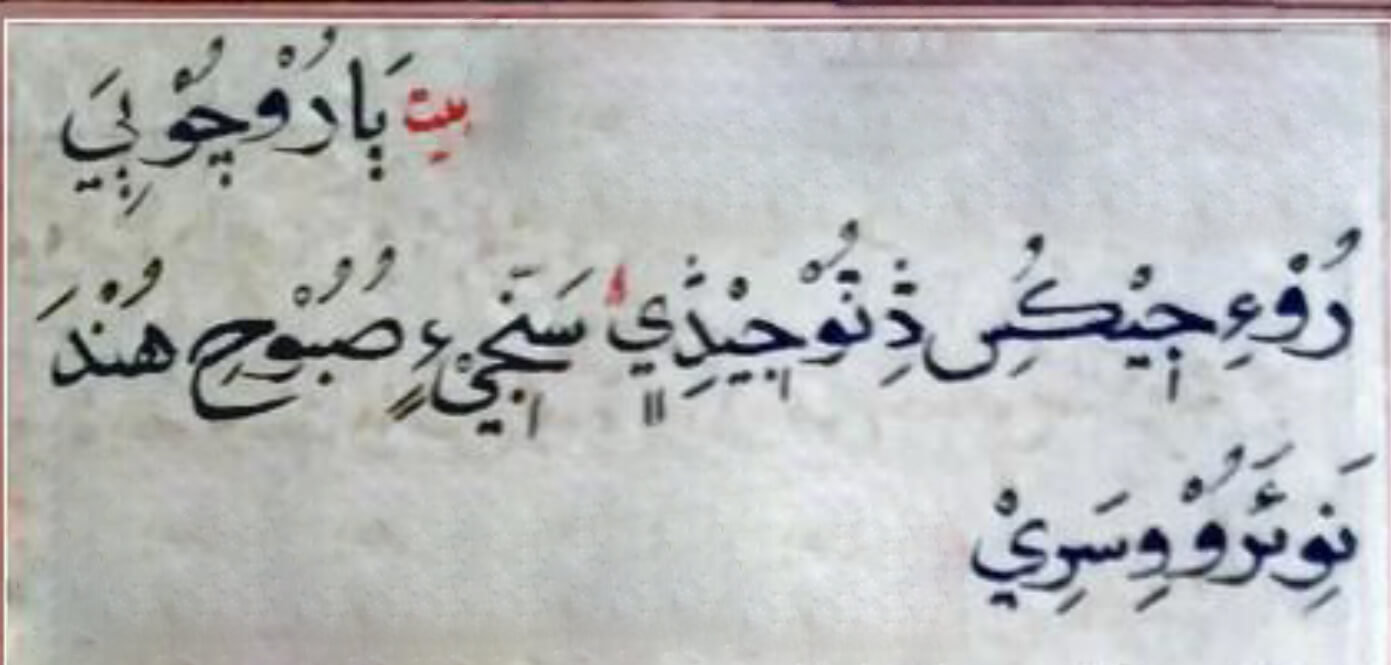 بيت پَارُوْچُوْپِيَ
رُوْءِ جِيْڪُسِ ذِنُوْجِيْذِيِ سَنجِيْءٍ صُبُوْحِ هُنْدَ
نَوِئَرُوْ وِسَرِيْ